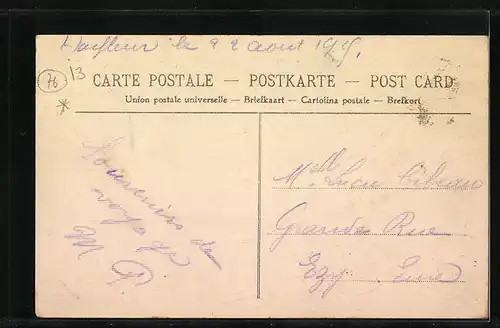 Harfleur le 22 aout 19
76
13
CARTE POSTALE — POSTKARTE — POST CARD
Union postale universelle — Briefkaart — Cartolina postale — Brefkort
Souvenirs de
voyage
M P.
Melle
Grande Rue
Ezy Eure